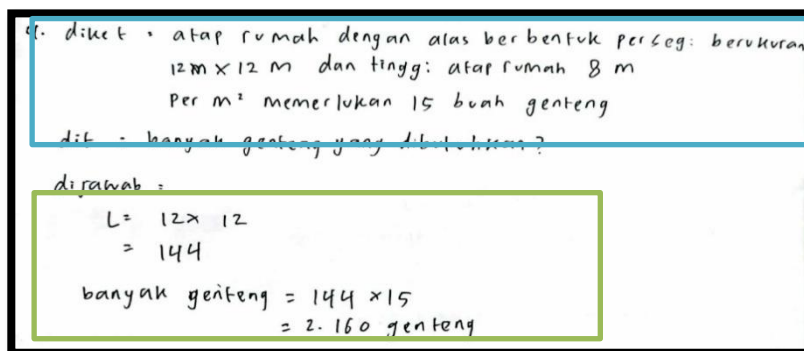 4. diket : atap rumah dengan alas berbentuk persegi berukuran
12 m x 12 m dan tinggi atap rumah 8 m
Per m² memerlukan 15 buah genteng
dit : banyak genteng yang dibutuhkan?
dijawab :
L = 12 x 12
= 144
banyak genteng = 144 x 15
= 2.160 genteng